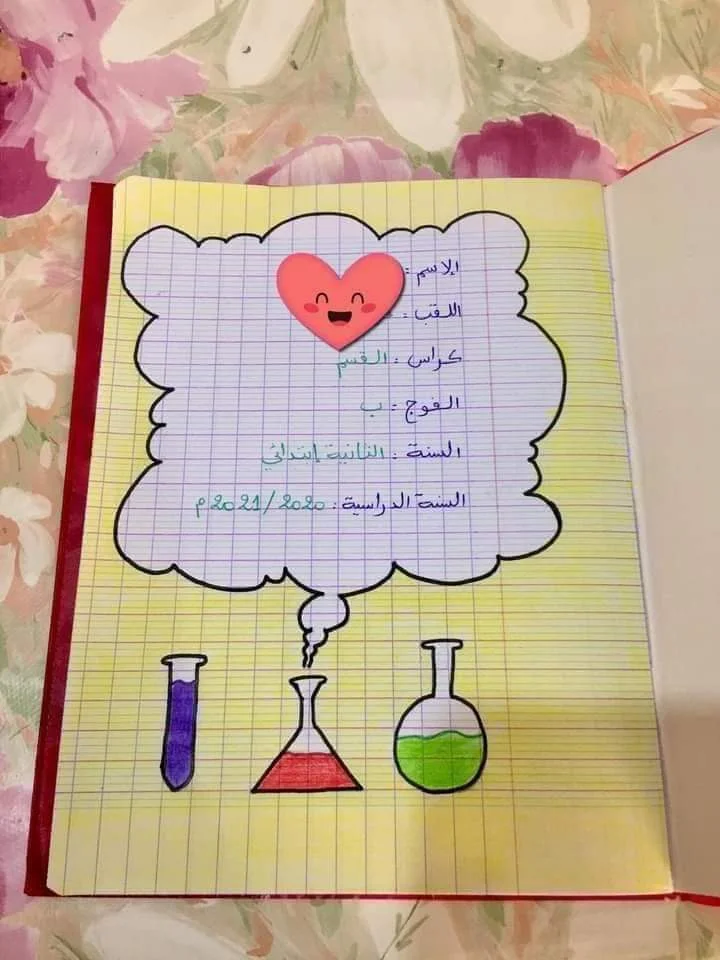 الإسم :
اللقب :
كراس : القسم
الفوج : ب
السنة : الثانية إبتدائي
السنة الدراسية : 2021/2020م